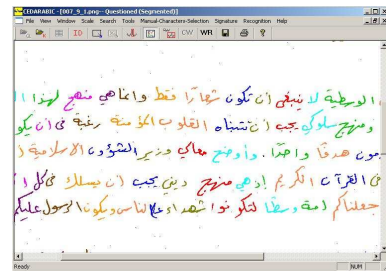 CEDARARIC - [007_9_1.png-- Questioned (Segmented)]
File View Window Scale Search Tools Manual-Characters-Selection Signature Recognition Help
ID CW WR
الوسطية لا ينبغي ان تكون شعارا فقط وانما هي منهج لهذا ا
ومنهج سلوكي يجب ان تتبناه القلوب المؤمنة رغبة في ان يكو
مون هدفا واحدا. وأوضح معالي وزير الشؤون الاسلامية
في القرآن الكريم إذ هي منهج ديني يجب ان يسلك في كل ا
جعلناكم امة وسطا لتكونوا شهداء على الناس ويكون الرسول عليكم
Ready
NUM